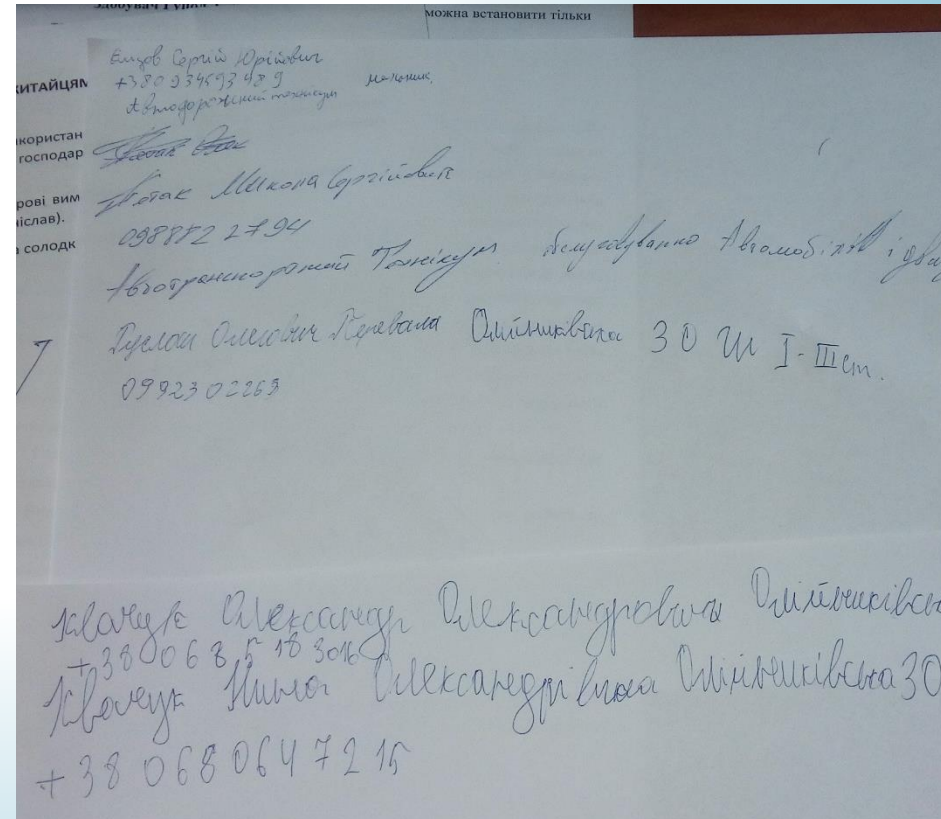 можна встановити тільки
КИТАЙЦЯМ
користан
господар
рові вим
іслав).
солодк
Сергій Юрійович
+380934593489 механик.
Автодорожский техникум
Микола Сергійович
0988822794
Автотранспортний Технікум. Автомобілів і
Руслан Олегович Перевала Олійниківська ЗО Ш I-III ст.
0992302269
Квачук Олександр Олександрович Олійниківсь
+380685183016
Квачук Нина Олександрівна Олійниківська ЗО
+380680647215